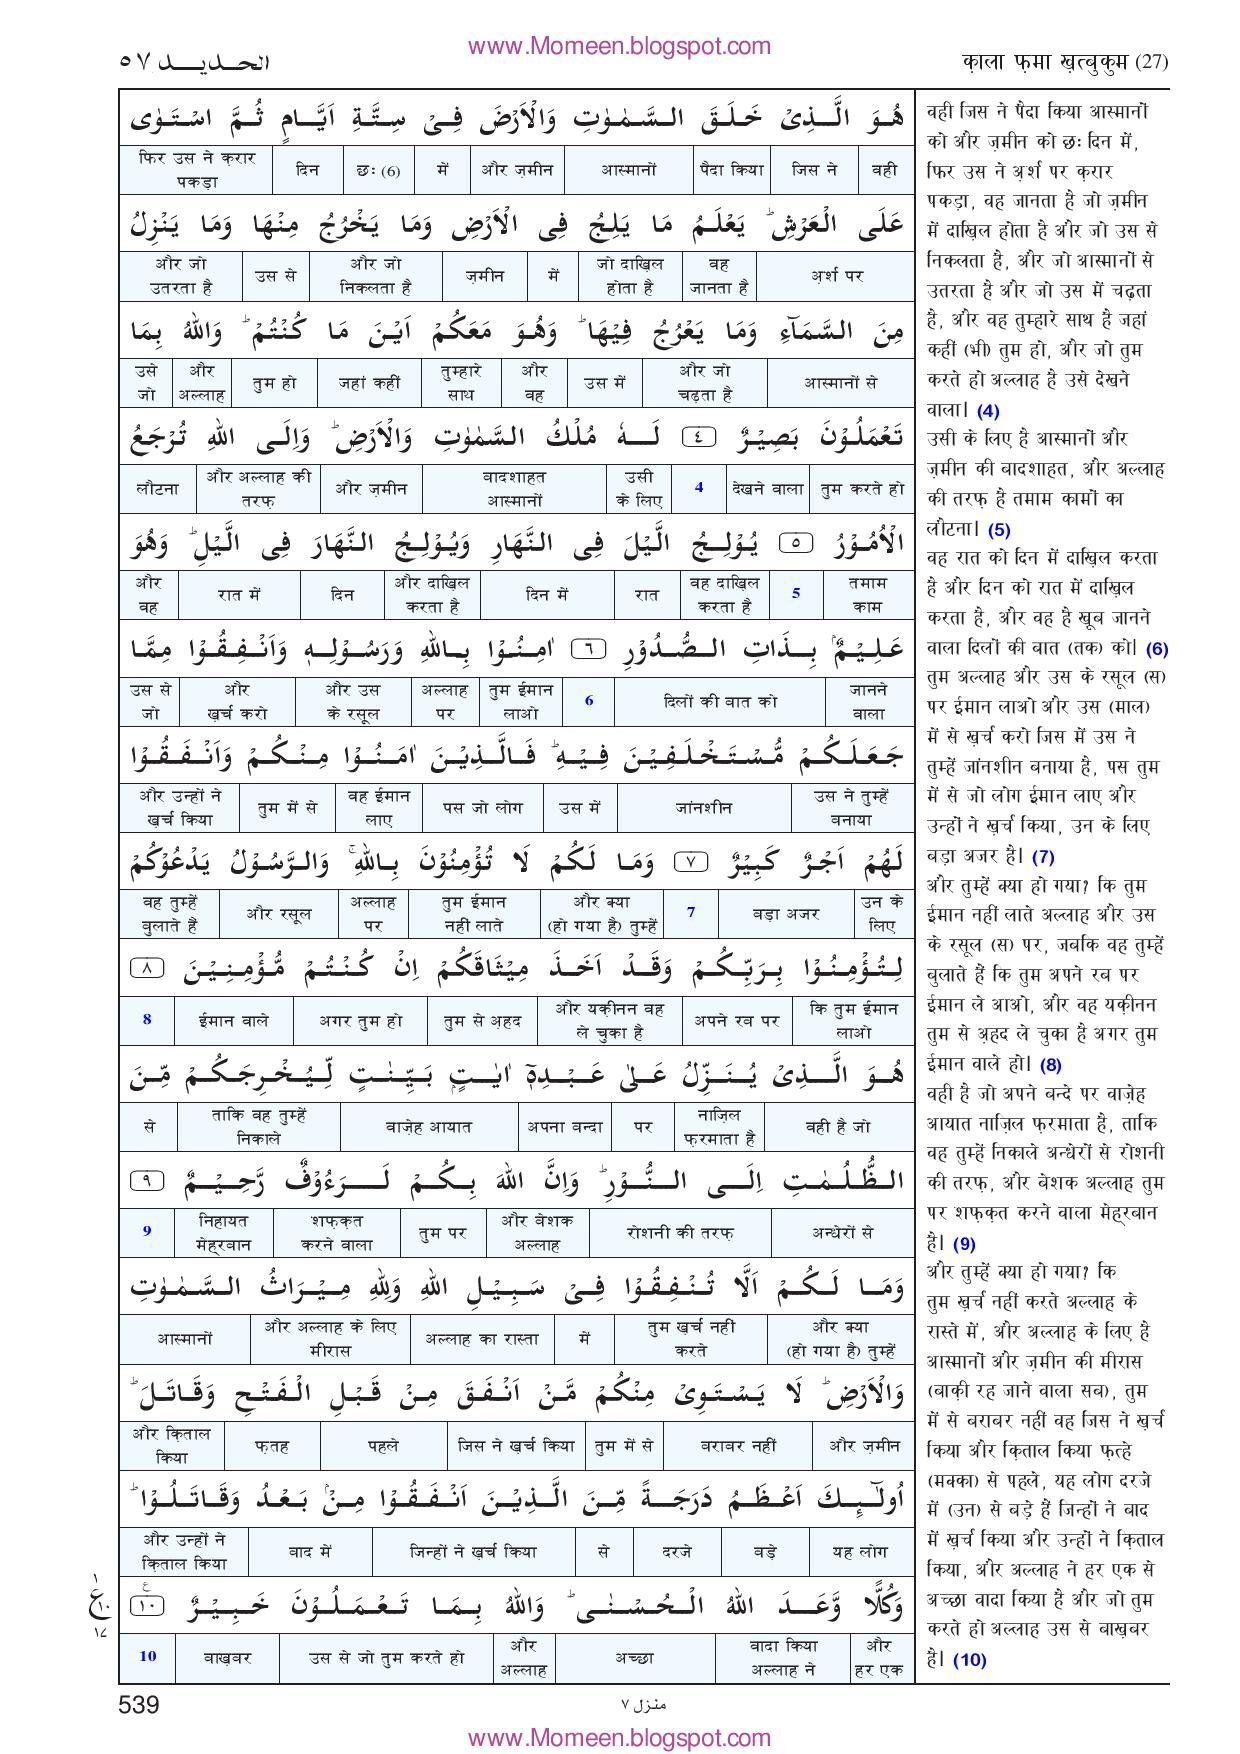 www.Momeen.blogspot.com
الحـديـد ٥٧
क़ाला फ़मा ख़त्बुकुम (27)
هُوَ الَّذِىْ خَلَقَ السَّمٰوٰتِ وَالْاَرْضَ فِىْ سِتَّةِ اَيَّامٍ ثُمَّ اسْتَوٰى
वही | जिस ने | पैदा किया | आस्मानों | और ज़मीन | में | छः (6) | दिन | फिर उस ने क़रार पकड़ा
عَلَى الْعَرْشِ ؕ يَعْلَمُ مَا يَلِجُ فِى الْاَرْضِ وَمَا يَخْرُجُ مِنْهَا وَمَا يَنْزِلُ
अ़र्श पर | वह जानता है | जो दाख़िल होता है | में | ज़मीन | और जो निकलता है | उस से | और जो उतरता है
مِنَ السَّمَآءِ وَمَا يَعْرُجُ فِيْهَا ؕ وَهُوَ مَعَكُمْ اَيْنَ مَا كُنْتُمْ ؕ وَاللّٰهُ بِمَا
आस्मानों से | और जो चढ़ता है | उस में | और वह | तुम्हारे साथ | जहां कहीं | तुम हो | और अल्लाह | उसे जो
تَعْمَلُوْنَ بَصِيْرٌ ٤ لَهٗ مُلْكُ السَّمٰوٰتِ وَالْاَرْضِ ؕ وَاِلَى اللّٰهِ تُرْجَعُ
तुम करते हो | देखने वाला | 4 | उसी के लिए | बादशाहत आस्मानों | और ज़मीन | और अल्लाह की तरफ़ | लौटना
الْاُمُوْرُ ٥ يُوْلِجُ الَّيْلَ فِى النَّهَارِ وَيُوْلِجُ النَّهَارَ فِى الَّيْلِ ؕ وَهُوَ
तमाम काम | 5 | वह दाख़िल करता है | रात | दिन में | और दाख़िल करता है | दिन | रात में | और वह
عَلِيْمٌۢ بِذَاتِ الصُّدُوْرِ ٦ اٰمِنُوْا بِاللّٰهِ وَرَسُوْلِهٖ وَاَنْفِقُوْا مِمَّا
जानने वाला | दिलों की बात को | 6 | तुम ईमान लाओ | अल्लाह पर | और उस के रसूल | और ख़र्च करो | उस से जो
جَعَلَكُمْ مُّسْتَخْلَفِيْنَ فِيْهِ ؕ فَالَّذِيْنَ اٰمَنُوْا مِنْكُمْ وَاَنْفَقُوْا
उस ने तुम्हें बनाया | जांनशीन | उस में | पस जो लोग | वह ईमान लाए | तुम में से | और उन्हों ने ख़र्च किया
لَهُمْ اَجْرٌ كَبِيْرٌ ٧ وَمَا لَكُمْ لَا تُؤْمِنُوْنَ بِاللّٰهِ ۚ وَالرَّسُوْلُ يَدْعُوْكُمْ
उन के लिए | बड़ा अजर | 7 | और क्या (हो गया है) तुम्हें | तुम ईमान नहीं लाते | अल्लाह पर | और रसूल | वह तुम्हें बुलाते हैं
لِتُؤْمِنُوْا بِرَبِّكُمْ وَقَدْ اَخَذَ مِيْثَاقَكُمْ اِنْ كُنْتُمْ مُّؤْمِنِيْنَ ٨
कि तुम ईमान लाओ | अपने रब पर | और यक़ीनन वह ले चुका है | तुम से अ़हद | अगर तुम हो | ईमान वाले | 8
هُوَ الَّذِىْ يُنَزِّلُ عَلٰى عَبْدِهٖٓ اٰيٰتٍۭ بَيِّنٰتٍ لِّيُخْرِجَكُمْ مِّنَ
वही है जो | नाज़िल फ़रमाता है | पर | अपना बन्दा | वाज़ेह आयात | ताकि वह तुम्हें निकाले | से
الظُّلُمٰتِ اِلَى النُّوْرِ ؕ وَاِنَّ اللّٰهَ بِكُمْ لَرَءُوْفٌ رَّحِيْمٌ ٩
अन्धेरों से | रोशनी की तरफ़ | और बेशक अल्लाह | तुम पर | शफ़क़त करने वाला | निहायत मेह्रबान | 9
وَمَا لَكُمْ اَلَّا تُنْفِقُوْا فِىْ سَبِيْلِ اللّٰهِ وَلِلّٰهِ مِيْرَاثُ السَّمٰوٰتِ
और क्या (हो गया है) तुम्हें | तुम ख़र्च नहीं करते | में | अल्लाह का रास्ता | और अल्लाह के लिए मीरास | आस्मानों
وَالْاَرْضِ ؕ لَا يَسْتَوِىْ مِنْكُمْ مَّنْ اَنْفَقَ مِنْ قَبْلِ الْفَتْحِ وَقَاتَلَ ؕ
और ज़मीन | बराबर नहीं | तुम में से | जिस ने ख़र्च किया | पहले | फ़तह | और क़िताल किया
اُولٰٓئِكَ اَعْظَمُ دَرَجَةً مِّنَ الَّذِيْنَ اَنْفَقُوْا مِنْۢ بَعْدُ وَقَاتَلُوْا ؕ
यह लोग | बड़े | दरजे | से | जिन्हों ने ख़र्च किया | बाद में | और उन्हों ने क़िताल किया
وَكُلًّا وَّعَدَ اللّٰهُ الْحُسْنٰى ؕ وَاللّٰهُ بِمَا تَعْمَلُوْنَ خَبِيْرٌ ١٠
और हर एक | वादा किया अल्लाह ने | अच्छा | और अल्लाह | उस से जो तुम करते हो | बाख़बर | 10
١ ع ١٠ ١٧
वही जिस ने पैदा किया आस्मानों
को और ज़मीन को छः दिन में,
फिर उस ने अ़र्श पर क़रार
पकड़ा, वह जानता है जो ज़मीन
में दाख़िल होता है और जो उस से
निकलता है, और जो आस्मानों से
उतरता है और जो उस में चढ़ता
है, और वह तुम्हारे साथ है जहां
कहीं (भी) तुम हो, और जो तुम
करते हो अल्लाह है उसे देखने
वाला। (4)
उसी के लिए है आस्मानों और
ज़मीन की बादशाहत, और अल्लाह
की तरफ़ है तमाम कामों का
लौटना। (5)
वह रात को दिन में दाख़िल करता
है और दिन को रात में दाख़िल
करता है, और वह है खूब जानने
वाला दिलों की बात (तक) को। (6)
तुम अल्लाह और उस के रसूल (स)
पर ईमान लाओ और उस (माल)
में से ख़र्च करो जिस में उस ने
तुम्हें जांनशीन बनाया है, पस तुम
में से जो लोग ईमान लाए और
उन्हों ने ख़र्च किया, उन के लिए
बड़ा अजर है। (7)
और तुम्हें क्या हो गया? कि तुम
ईमान नहीं लाते अल्लाह और उस
के रसूल (स) पर, जबकि वह तुम्हें
बुलाते हैं कि तुम अपने रब पर
ईमान ले आओ, और वह यक़ीनन
तुम से अ़हद ले चुका है अगर तुम
ईमान वाले हो। (8)
वही है जो अपने बन्दे पर वाज़ेह
आयात नाज़िल फ़रमाता है, ताकि
वह तुम्हें निकाले अन्धेरों से रोशनी
की तरफ़, और बेशक अल्लाह तुम
पर शफ़क़त करने वाला मेह्रबान
है। (9)
और तुम्हें क्या हो गया? कि
तुम ख़र्च नहीं करते अल्लाह के
रास्ते में, और अल्लाह के लिए है
आस्मानों और ज़मीन की मीरास
(बाक़ी रह जाने वाला सब), तुम
में से बराबर नहीं वह जिस ने ख़र्च
किया और क़िताल किया फ़त्हे
(मक्का) से पहले, यह लोग दरजे
में (उन) से बड़े हैं जिन्हों ने बाद
में ख़र्च किया और उन्हों ने क़िताल
किया, और अल्लाह ने हर एक से
अच्छा वादा किया है और जो तुम
करते हो अल्लाह उस से बाख़बर
है। (10)
539
منزل ٧
www.Momeen.blogspot.com